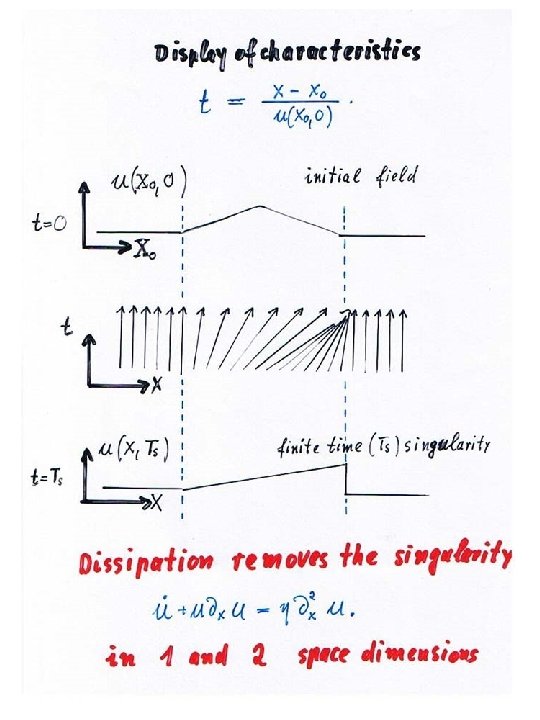 Display of characteristics
t = \frac{x - x_0}{u(x_0, 0)}.
u(x_0, 0) initial field
t=0
x_0
t
x
u(x, T_s) finite time (T_s) singularity
t=T_s
x
Dissipation removes the singularity
u̇ + u∂_x u = η ∂_x^2 u.
in 1 and 2 space dimensions